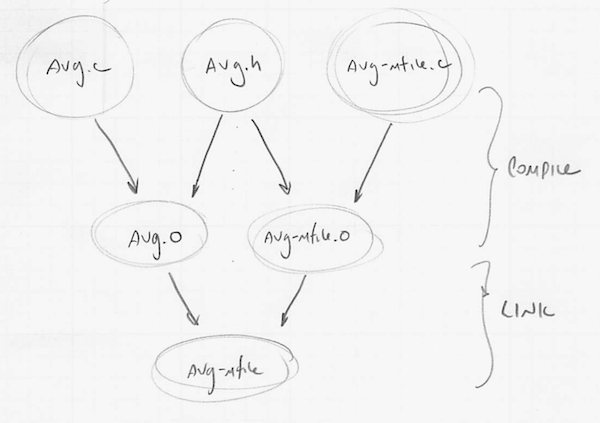 Avg.c
Avg.h
Avg-mfile.c
COMPILE
Avg.o
Avg-mfile.o
LINK
Avg-mfile